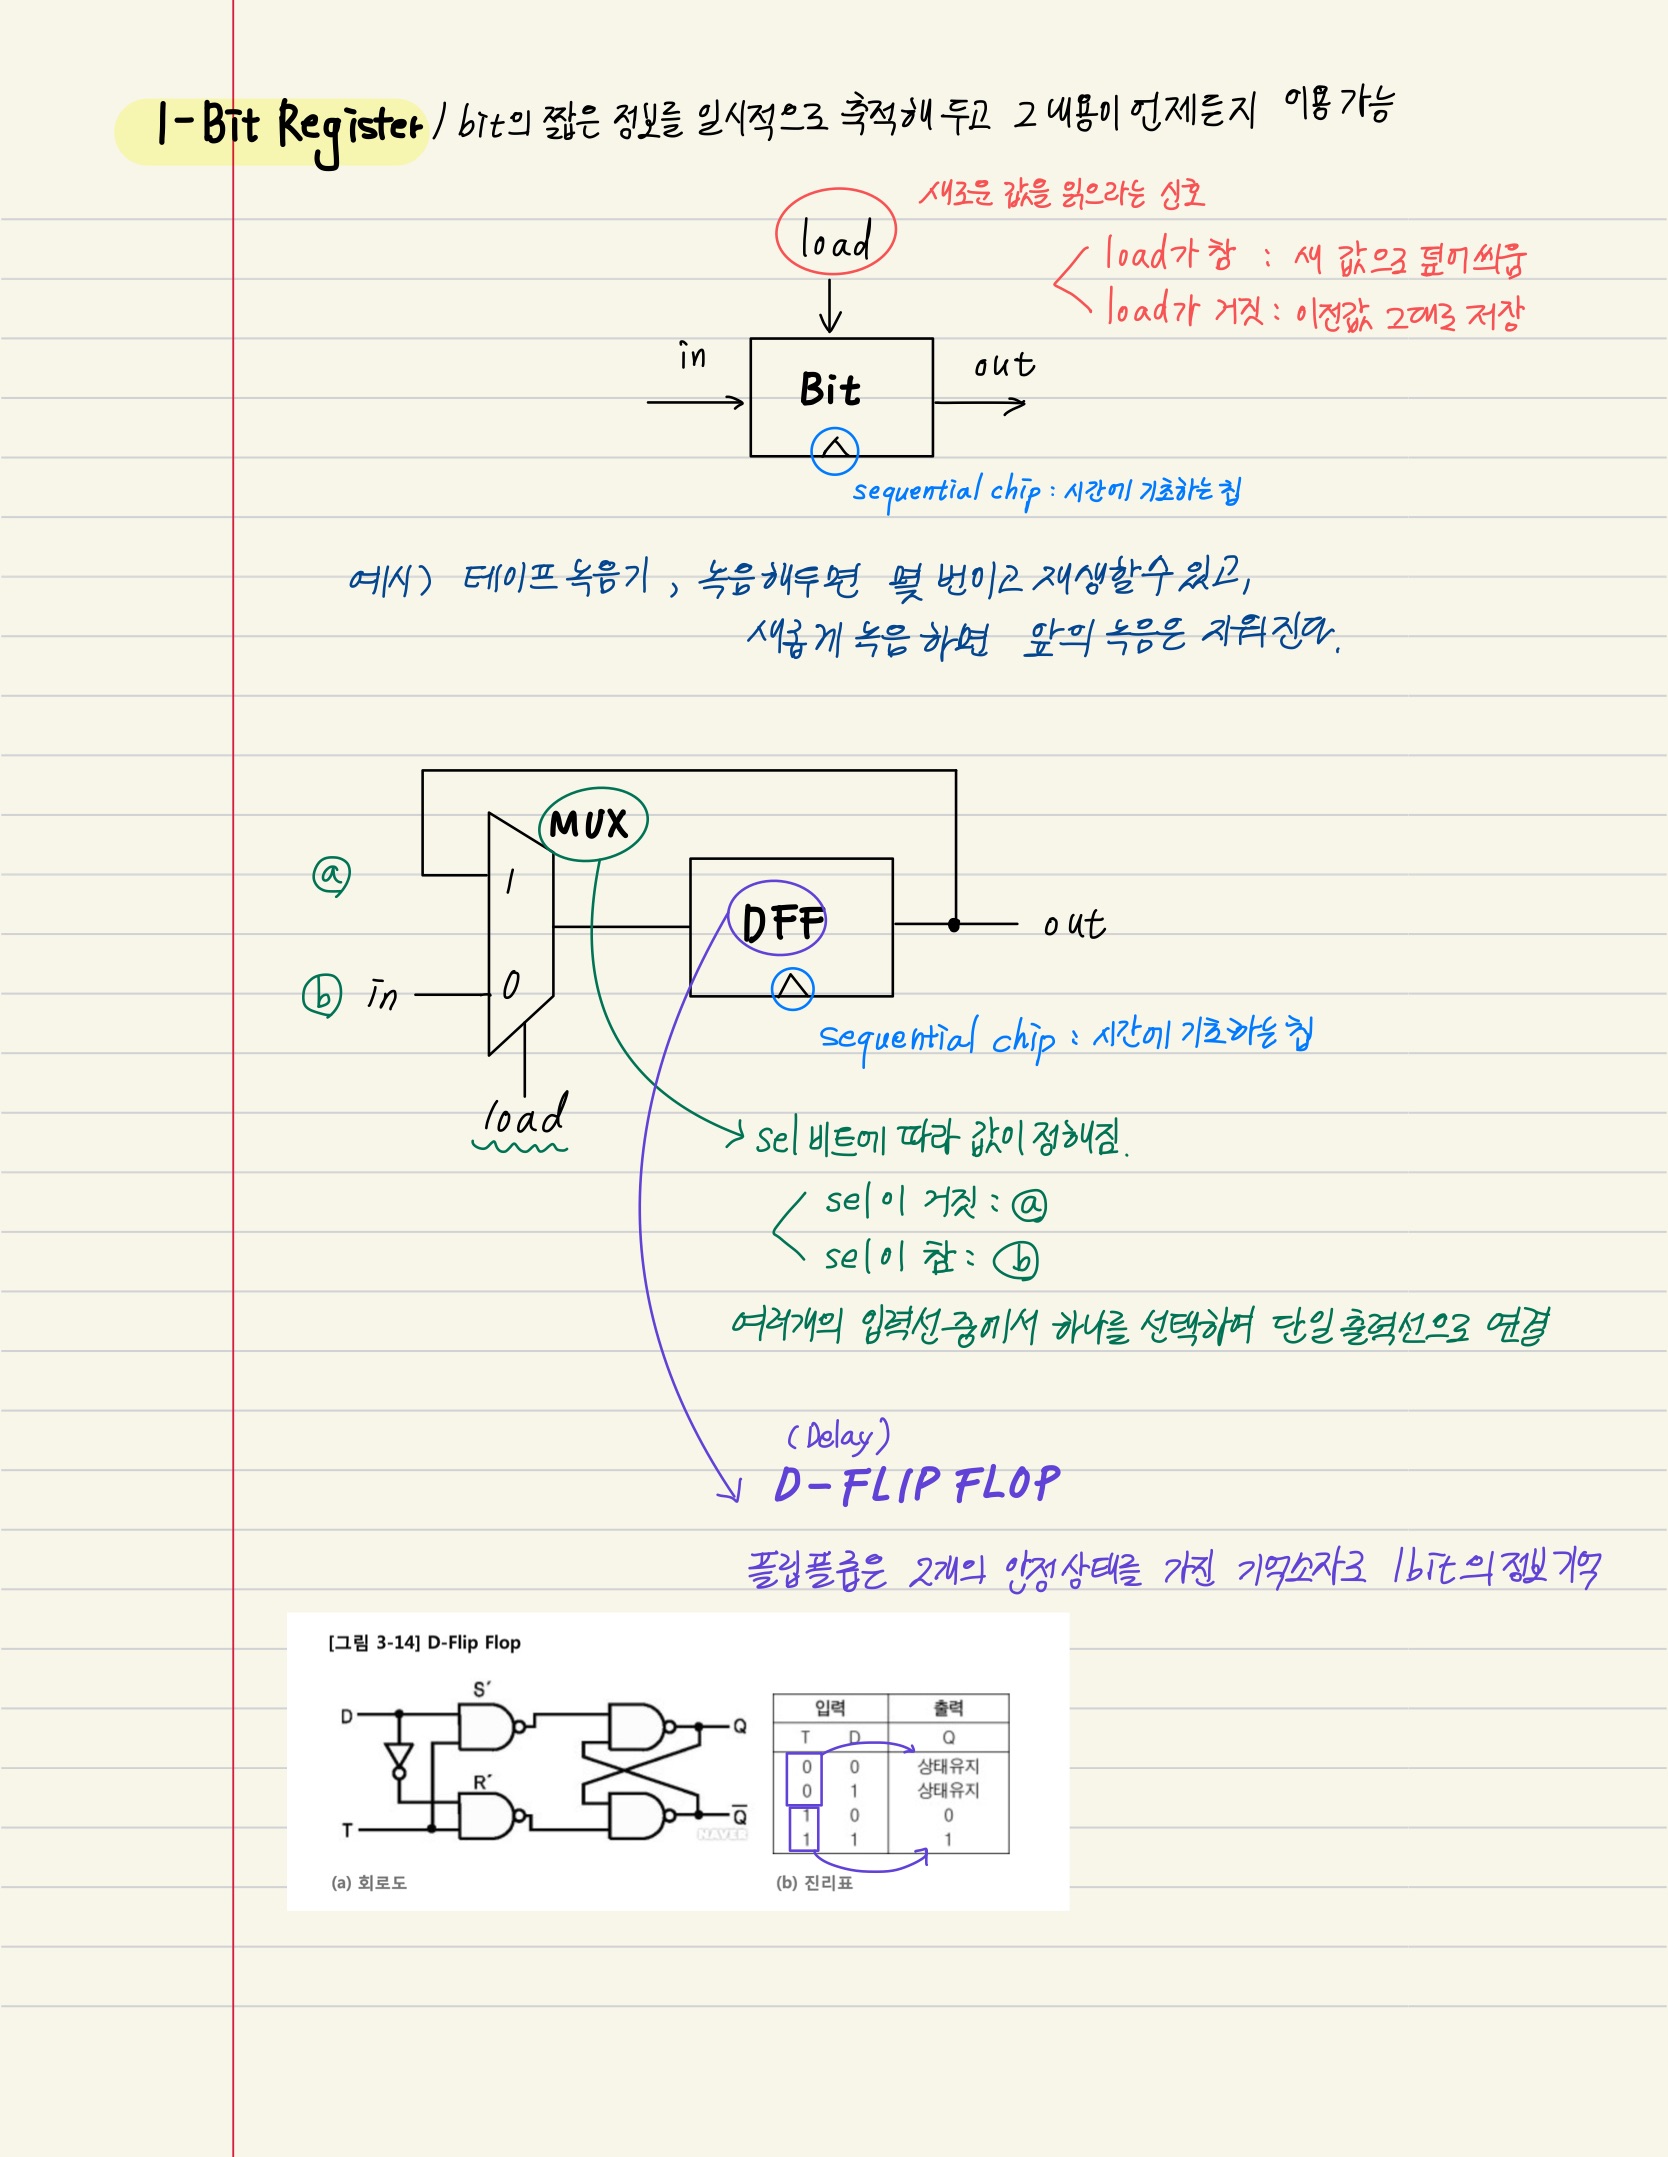 1-Bit Register 1 bit의 짧은 정보를 일시적으로 축적해 두고 그 내용이 언제든지 이용 가능
새로운 값을 읽으라는 신호
load
load가 참 : 새 값으로 덮어 씌움
load가 거짓 : 이전값 그대로 저장
in
Bit
out
sequential chip : 시간에 기초하는 칩
예시) 테이프 녹음기, 녹음해두면 몇 번이고 재생할 수 있고,
새롭게 녹음 하면 앞의 녹음은 지워진다.
MUX
ⓐ
1
DFF
out
ⓑ in
0
sequential chip : 시간에 기초하는 칩
load
sel 비트에 따라 값이 정해짐.
sel이 거짓 : ⓐ
sel이 참 : ⓑ
여러개의 입력선 중에서 하나를 선택하여 단일 출력선으로 연결
(Delay)
D-FLIP FLOP
플립플롭은 2개의 안정상태를 가진 기억소자로 1bit의 정보 기억
[그림 3-14] D-Flip Flop
S′
D
Q
R′
T
Q̅
NAVER
입력 출력
T D Q
0 0 상태유지
0 1 상태유지
1 0 0
1 1 1
(a) 회로도
(b) 진리표